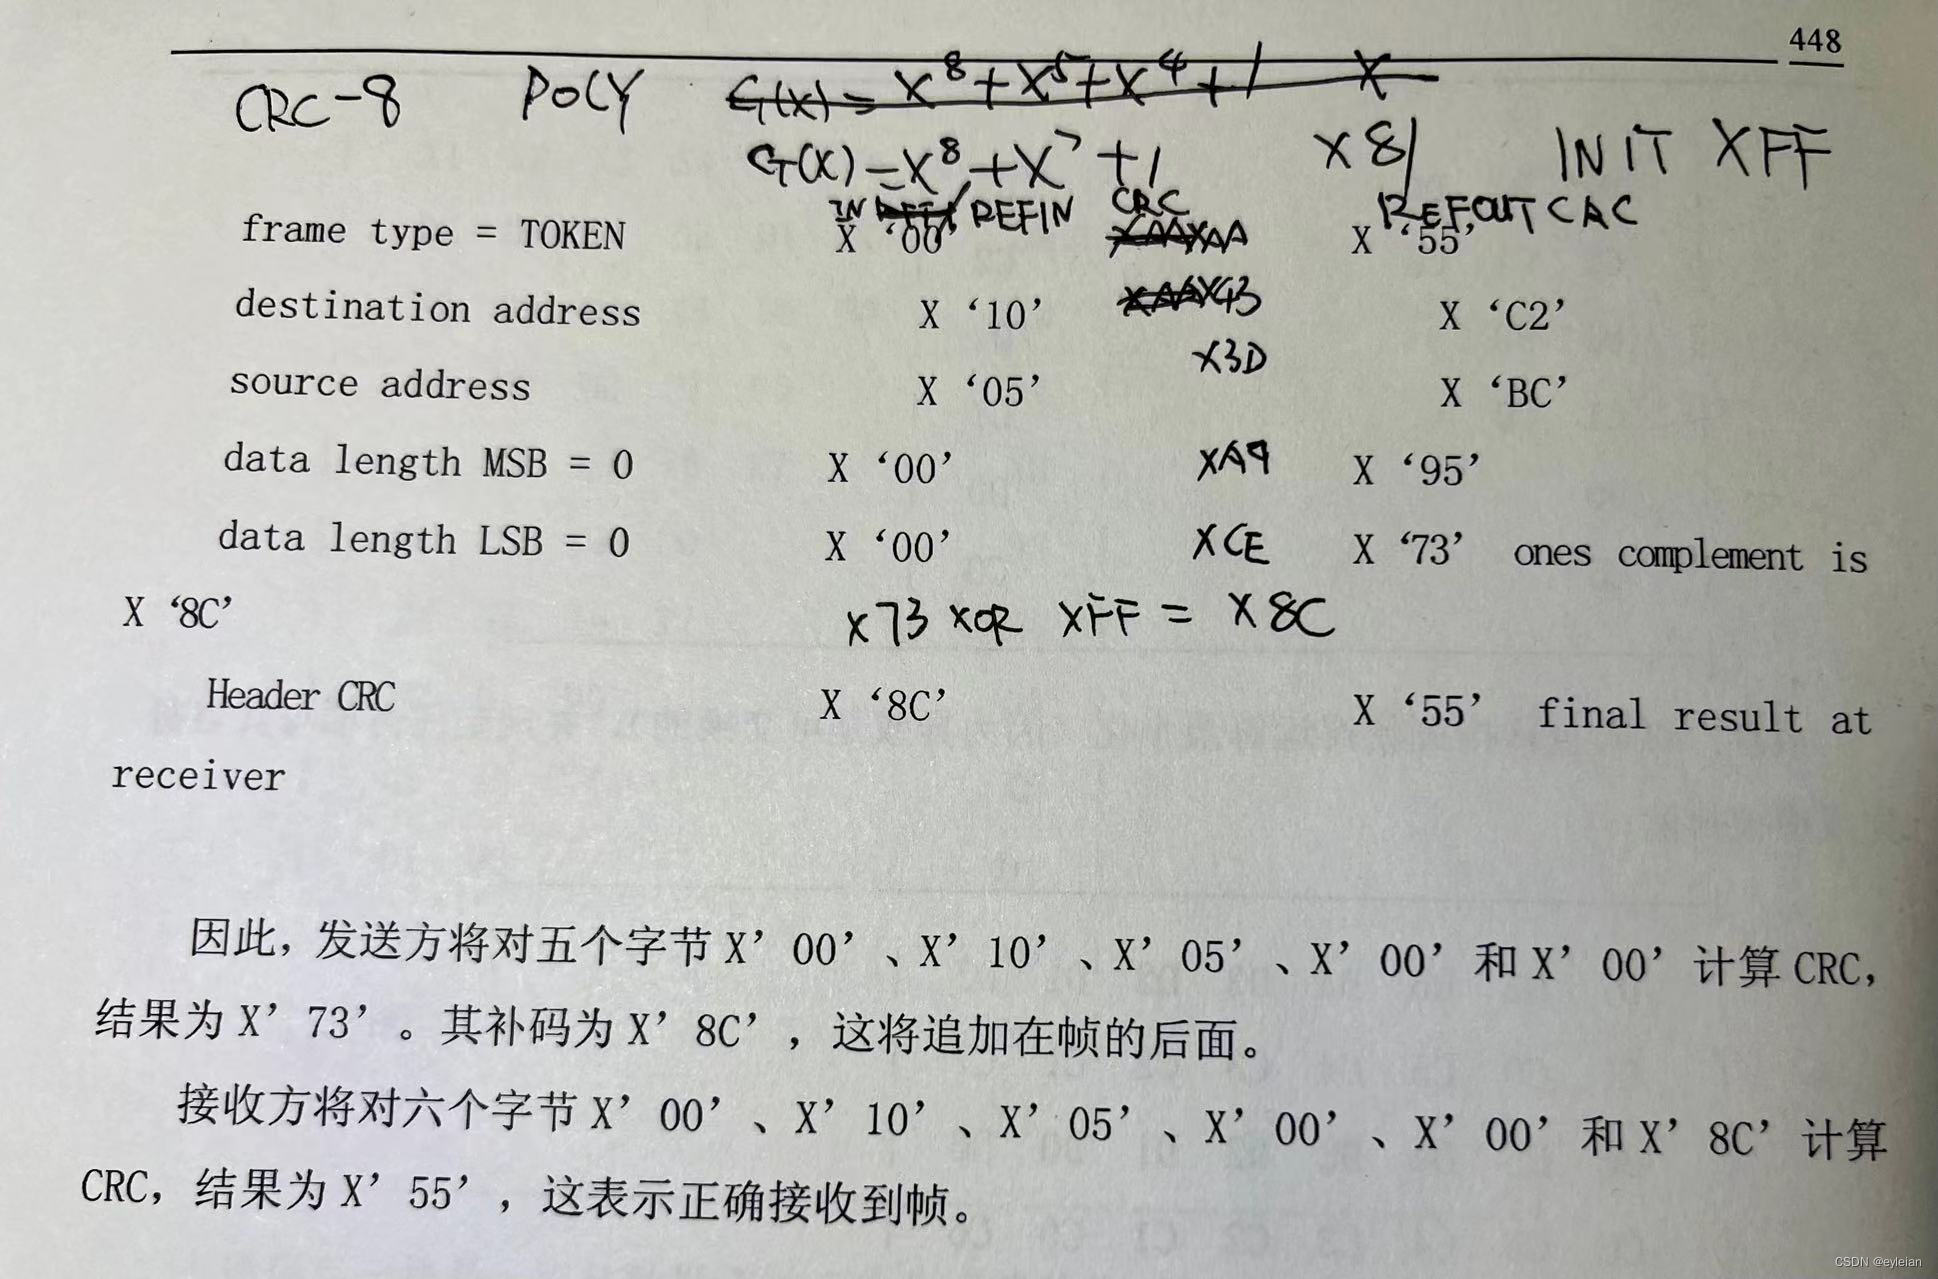 448
CRC-8 POLY G(X) = X⁸+X⁵+X⁴+1 X
G(X) = X⁸+X⁷+1 X81 INIT XFF
IN REFIN CRC REFOUT CAC
frame type = TOKEN X ‘00’ XAA X ‘55’
destination address X ‘10’ X43 X ‘C2’
source address X ‘05’ X3D X ‘BC’
data length MSB = 0 X ‘00’ XA9 X ‘95’
data length LSB = 0 X ‘00’ XCE X ‘73’ ones complement is
X ‘8C’ X73 XOR XFF = X8C
Header CRC X ‘8C’ X ‘55’ final result at
receiver
因此，发送方将对五个字节X’00’、X’10’、X’05’、X’00’和X’00’计算CRC，
结果为X’73’。其补码为X’8C’，这将追加在帧的后面。
接收方将对六个字节X’00’、X’10’、X’05’、X’00’、X’00’和X’8C’计算
CRC，结果为X’55’，这表示正确接收到帧。
CSDN @eyleian